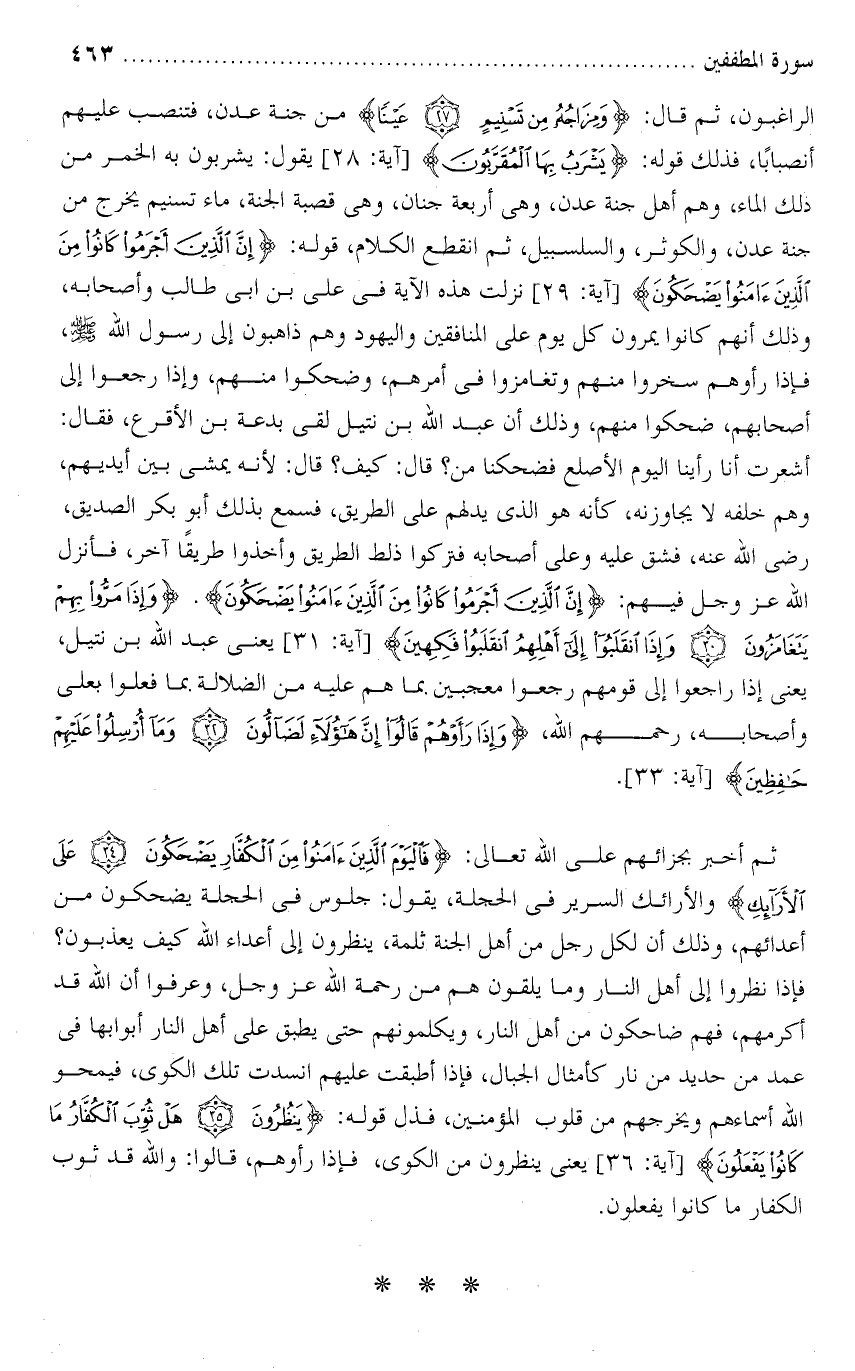 سورة المطففين ........................................................................ ٤٦٣
الراغبون، ثم قال: ﴿وَمِزَاجُهُ مِن تَسْنِيمٍ ٢٧ عَيْنًا﴾ من جنة عدن، فتنصب عليهم
أنصبابًا، فذلك قوله: ﴿يَشْرَبُ بِهَا الْمُقَرَّبُونَ﴾ [آية: ٢٨] يقول: يشربون به الخمر من
ذلك الماء، وهم أهل جنة عدن، وهى أربعة جنان، وهى قصبة الجنة، ماء تسنيم يخرج من
جنة عدن، والكوثر، والسلسبيل، ثم انقطع الكلام، قوله: ﴿إِنَّ الَّذِينَ أَجْرَمُوا كَانُوا مِنَ
الَّذِينَ ءَامَنُوا يَضْحَكُونَ﴾ [آية: ٢٩] نزلت هذه الآية فى على بن ابى طالب وأصحابه،
وذلك أنهم كانوا يمرون كل يوم على المنافقين واليهود وهم ذاهبون إلى رسول الله ﷺ،
فإذا رأوهم سخروا منهم وتغامزوا فى أمرهم، وضحكوا منهم، وإذا رجعوا إلى
أصحابهم، ضحكوا منهم، وذلك أن عبد الله بن نتيل لقى بدعة بن الأقرع، فقال:
أشعرت أنا رأينا اليوم الأصلع فضحكنا من؟ قال: كيف؟ قال: لأنه يمشى بين أيديهم،
وهم خلفه لا يجاوزنه، كأنه هو الذى يدلهم على الطريق، فسمع بذلك أبو بكر الصديق،
رضى الله عنه، فشق عليه وعلى أصحابه فتركوا ذلط الطريق وأخذوا طريقًا آخر، فأنزل
الله عز وجل فيهم: ﴿إِنَّ الَّذِينَ أَجْرَمُوا كَانُوا مِنَ الَّذِينَ ءَامَنُوا يَضْحَكُونَ﴾. ﴿وَإِذَا مَرُّوا بِهِمْ
يَتَغَامَزُونَ ٣٠ وَإِذَا انقَلَبُوا إِلَىٰ أَهْلِهِمُ انقَلَبُوا فَكِهِينَ﴾ [آية: ٣١] يعنى عبد الله بن نتيل،
يعنى إذا راجعوا إلى قومهم رجعوا معجبين بما هم عليه من الضلالة بما فعلوا بعلى
وأصحابه، رحمهم الله، ﴿وَإِذَا رَأَوْهُمْ قَالُوا إِنَّ هَٰؤُلَاءِ لَضَالُّونَ ٣٢ وَمَا أُرْسِلُوا عَلَيْهِمْ
حَافِظِينَ﴾ [آية: ٣٣].
ثم أخبر بجزائهم على الله تعالى: ﴿فَالْيَوْمَ الَّذِينَ ءَامَنُوا مِنَ الْكُفَّارِ يَضْحَكُونَ ٣٤ عَلَى
الْأَرَائِكِ﴾ والأرائك السرير فى الحجلة، يقول: جلوس فى الحجلة يضحكون من
أعدائهم، وذلك أن لكل رجل من أهل الجنة ثلمة، ينظرون إلى أعداء الله كيف يعذبون؟
فإذا نظروا إلى أهل النار وما يلقون هم من رحمة الله عز وجل، وعرفوا أن الله قد
أكرمهم، فهم ضاحكون من أهل النار، ويكلمونهم حتى يطبق على أهل النار أبوابها فى
عمد من حديد من نار كأمثال الجبال، فإذا أطبقت عليهم انسدت تلك الكوى، فيمحو
الله أسماءهم ويخرجهم من قلوب المؤمنين، فذل قوله: ﴿يَنظُرُونَ ٣٥ هَلْ ثُوِّبَ الْكُفَّارُ مَا
كَانُوا يَفْعَلُونَ﴾ [آية: ٣٦] يعنى ينظرون من الكوى، فإذا رأوهم، قالوا: والله قد ثوب
الكفار ما كانوا يفعلون.
* * *